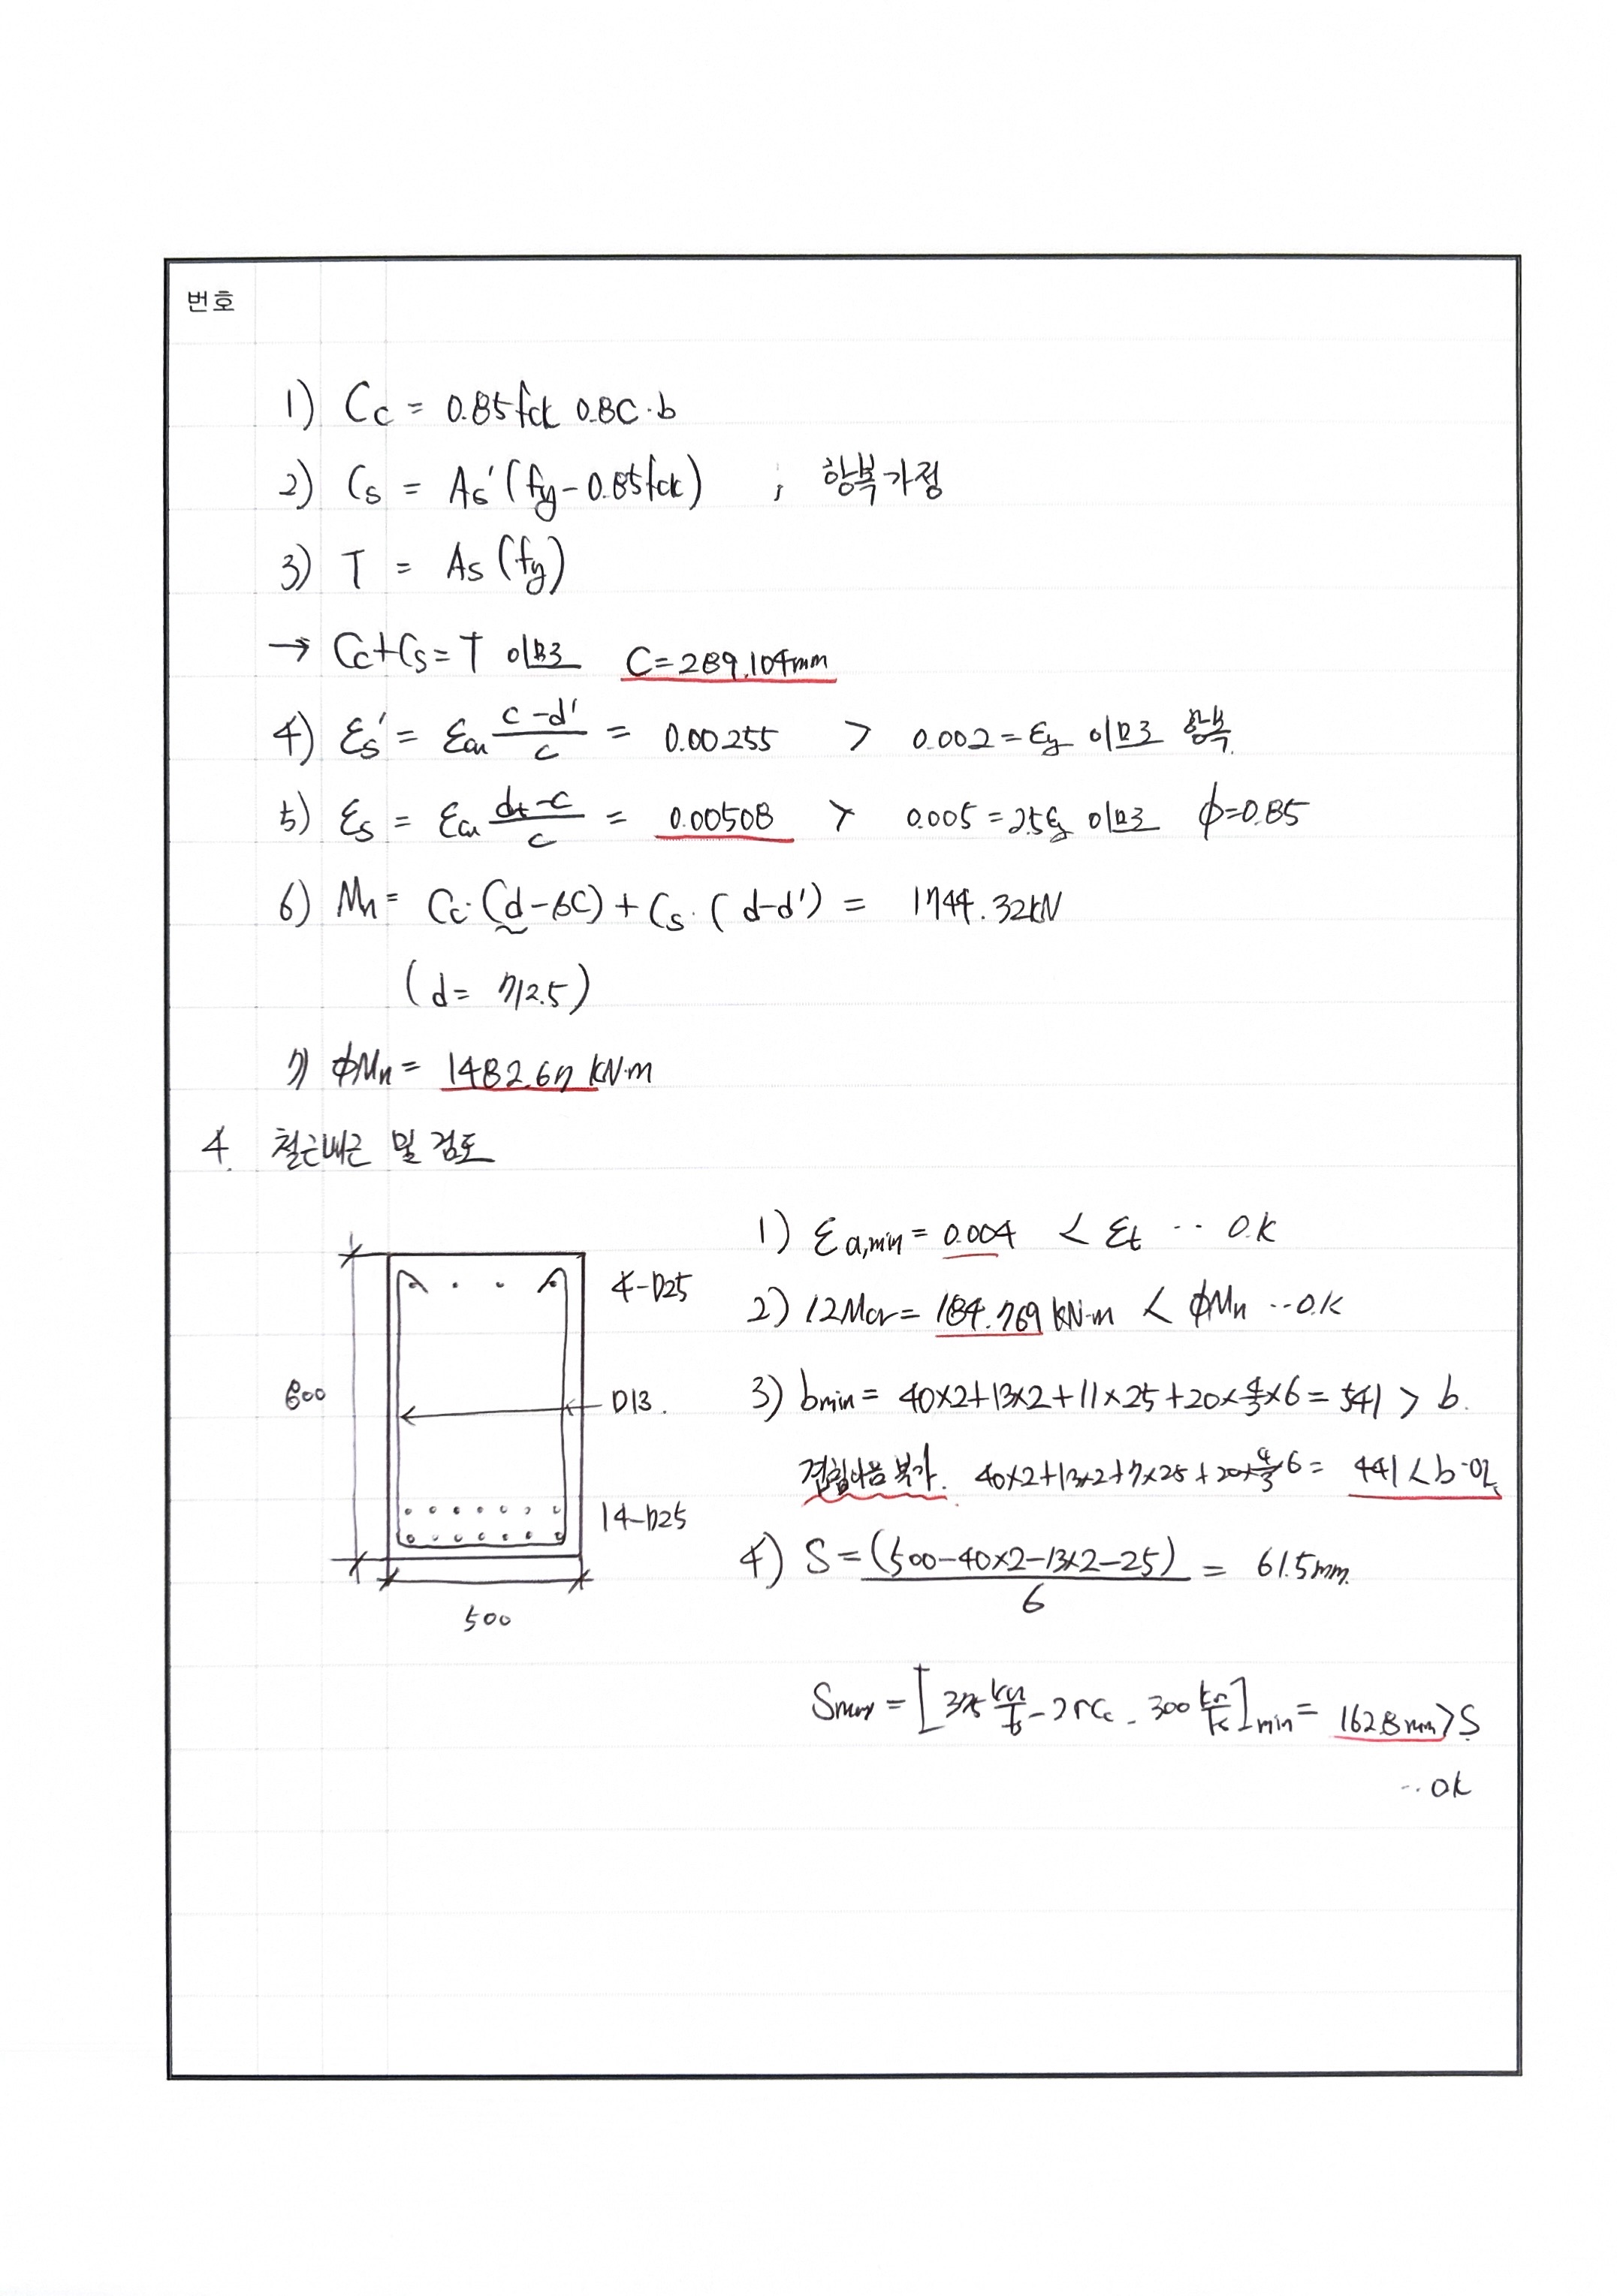 번호
1) Cc = 0.85fck 0.8C·b
2) Cs = As'(fy-0.85fck) ; 항복가정
3) T = As(fy)
→ Cc+Cs=T 이므로 C=289.104mm
4) εs' = εcu (c-d')/c = 0.00255 > 0.002=εy 이므로 항복.
5) εs = εcu (dt-c)/c = 0.00508 > 0.005=2.5εy 이므로 φ=0.85
6) Mn= Cc·(d-βC)+Cs·(d-d') = 1744.32kN
(d= 712.5)
7) φMn= 1482.67 kN·m
4. 철근배근 및 검토
1) εa,min = 0.004 < εt ‥ O.K
2) 1.2Mcr= 184.769 kN·m < φMn ‥O.K
3) bmin = 40×2+13×2+11×25+20×4/3×6 = 541 > b.
40×2+13×2+7×25+20×4/3×6 = 441 < b
4) S = (500-40×2-13×2-25)/6 = 61.5mm.
Smax = [375 kcr/fs - 2.5Cc, 300 kcr/fs]min = 162.8mm > S
‥ok
4-D25
800
D13.
14-D25
500